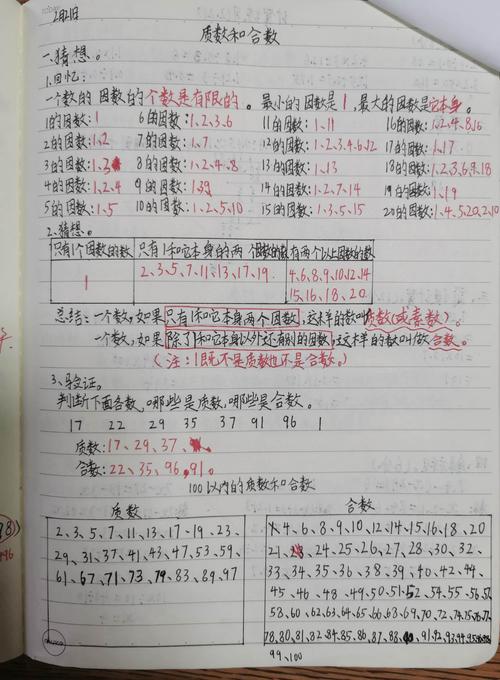 2月21日
质数和合数
一、猜想。
1.回忆:
一个数的因数的个数是有限的。最小的因数是1,最大的因数是它本身。
1的因数:1 6的因数:1、2、3、6 11的因数:1、11 16的因数:1、2、4、8、16
2的因数:1、2 7的因数:1、7 12的因数:1、2、3、4、6、12 17的因数:1、17
3的因数:1、3 8的因数:1、2、4、8 13的因数:1、13 18的因数:1、2、3、6、9、18
4的因数:1、2、4 9的因数:1、3、9 14的因数:1、2、7、14 19的因数:1、19
5的因数:1、5 10的因数:1、2、5、10 15的因数:1、3、5、15 20的因数:1、4、5、20、2、10
2、猜想。
只有1个因数的数 只有1和它本身的两个因数的数 有两个以上因数的数
1 2、3、5、7、11、13、17、19. 4、6、8、9、10、12、14
15、16、18、20.
总结:一个数,如果只有1和它本身两个因数,这样的数叫质数(或素数)。
一个数,如果除了1和它本身以外还有别的因数,这样的数叫做合数。
(注:1既不是质数也不是合数。)
3、验证。
判断下面各数,哪些是质数,哪些是合数。
17 22 29 35 37 91 96 1
质数:17、29、37、
合数:22、35、96、91。
100以内的质数和合数
质数 合数
2、3、5、7、11、13、17、19、23、
29、31、37、41、43、47、53、59、
61、67、71、73、79、83、89、97
4、6、8、9、10、12、14、15、16、18、20
21、24、25、26、27、28、30、32、
33、34、35、36、38、39、40、42、44、
45、46、48、49、50、51、52、54、55、56、57
58、60、62、63、64、65、66、68、69、70、72、74、75、76、77、
78、80、81、82、84、85、86、87、88、90、91、92、93、94、95、96、98
99、100